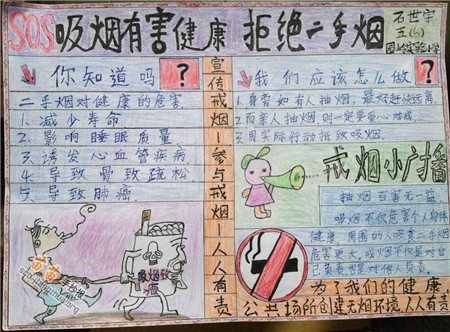 SOS吸烟有害健康 拒绝二手烟
石世宇
五(6)
你知道吗？
二手烟对健康的危害
1、减少寿命
2、影响睡眠质量
3、诱发心血管疾病
4、导致骨致疏松
5、导致肺癌
吸烟致癌
宣传戒烟—参与戒烟—人人有责
我们应该怎么做？
1、身旁如有人抽烟，最好赶快远离
3、用实际行动抵致吸烟
戒烟小广播
抽烟百害无一益
吸烟不仅危害个人身体
健康，周围的人吸食二手烟
危害更大，戒烟不仅是对自
己负责也是对他人负责。
为了我们的健康，
公共场所创建无烟环境人人有责